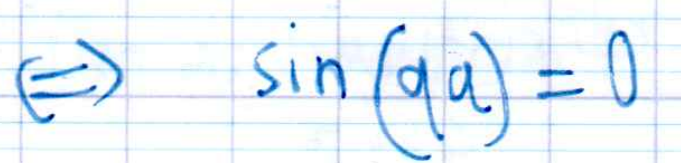 ⇔ sin(qa) = 0